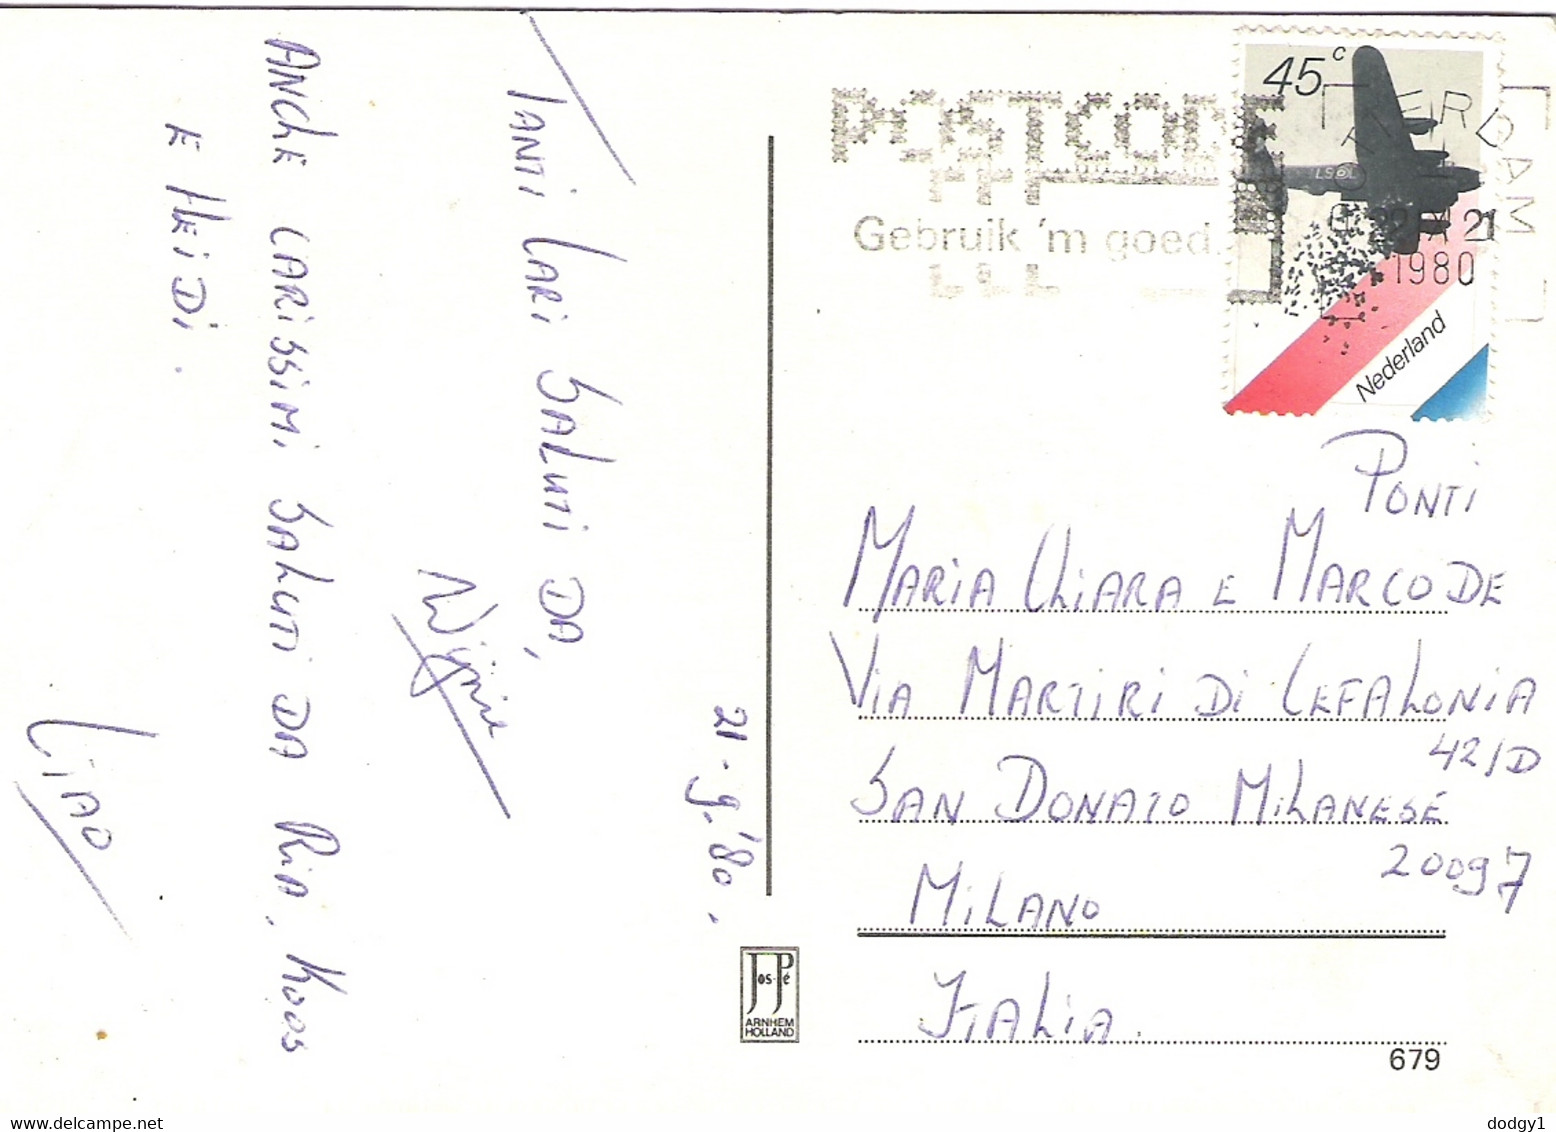 TANTI CARI SALUTI DA,
Wijnie
ANCHE CARISSIMI SALUTI DA RIA, KOOS
E HEIDI.
CIAO
21-9-'80.
POSTCODE
Gebruik 'm goed.
45c
LS L
22 IX 21
1980
Nederland
PONTI
MARIA CHIARA E MARCO DE
VIA MARTIRI DI CEFALONIA
42/D
SAN DONATO MILANESE
20097
MILANO
ITALIA.
Jos-Pé
ARNHEM
HOLLAND
679
dodgy1